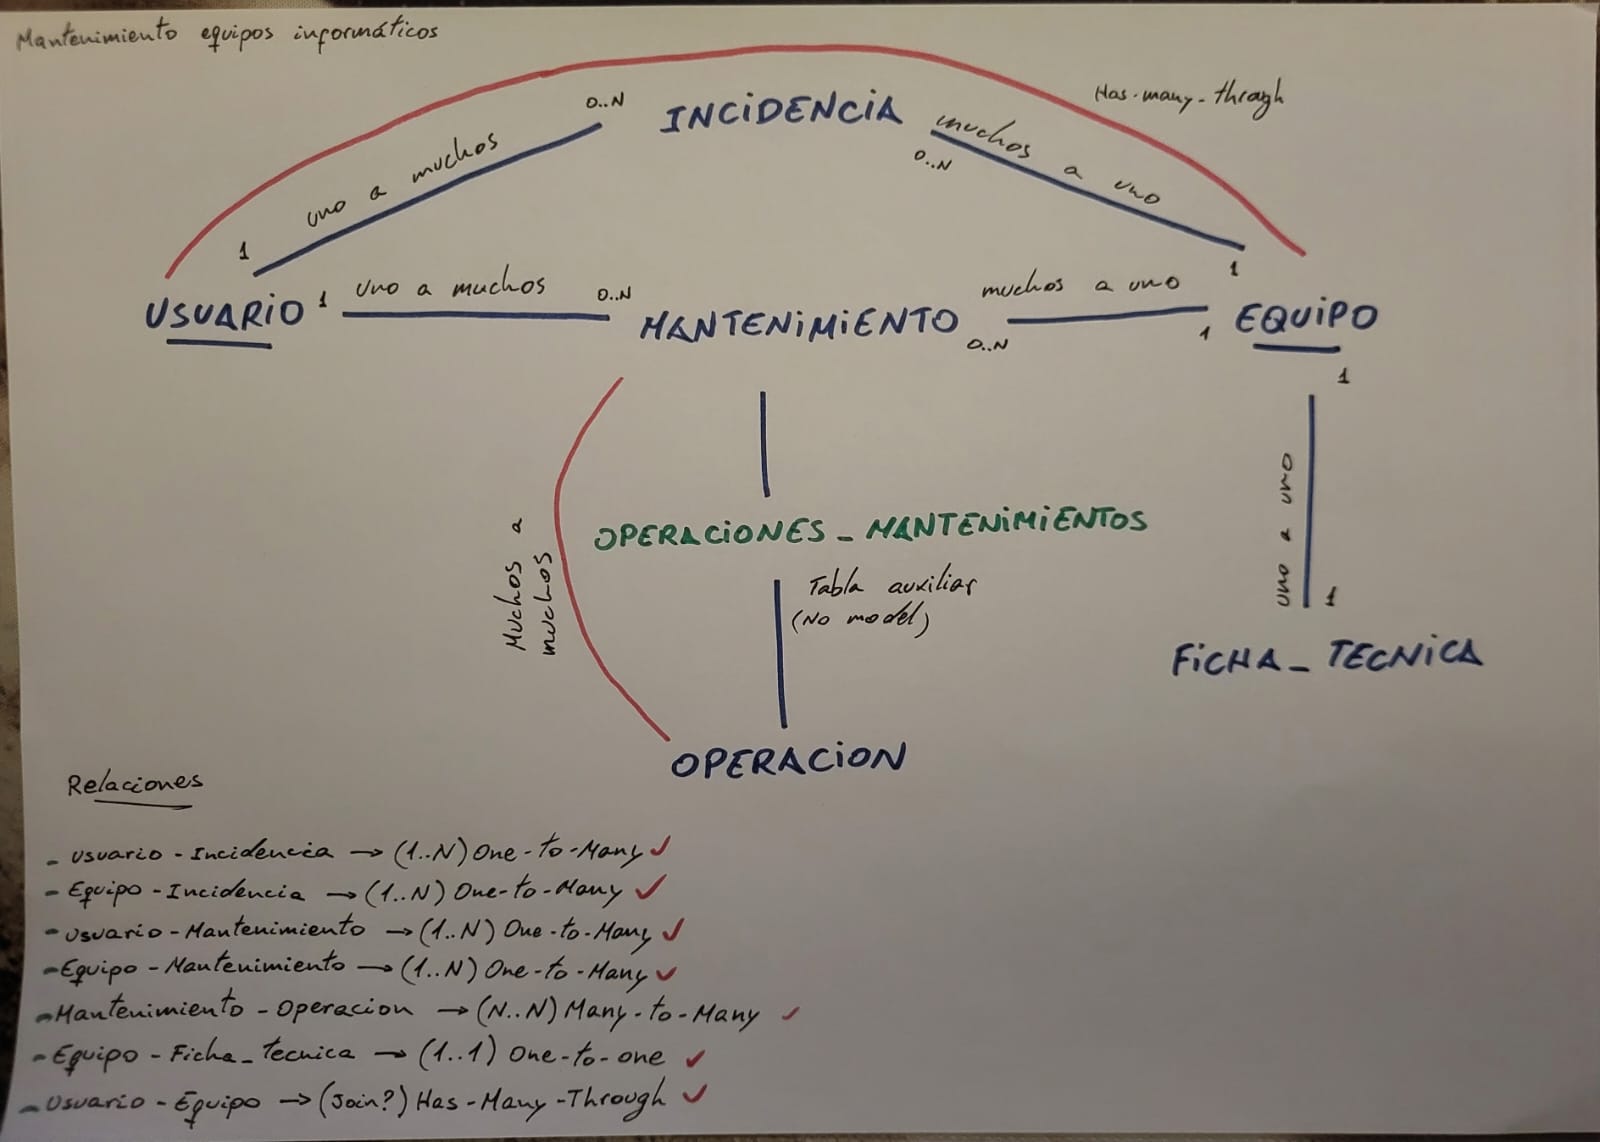 Mantenimiento equipos informáticos
Has-many-through
0..N
INCIDENCIA
muchos a uno
0..N
uno a muchos
1
1
USUARIO
1
uno a muchos
0..N
MANTENIMIENTO
0..N
muchos a uno
1
EQUIPO
1
uno a uno
1
FICHA_TECNICA
OPERACIONES_MANTENIMIENTOS
Tabla auxiliar
(No model)
Muchos a
muchos
OPERACION
Relaciones
- Usuario - Incidencia → (1..N) One-to-Many ✓
- Equipo - Incidencia → (1..N) One-to-Many ✓
- Usuario - Mantenimiento → (1..N) One-to-Many ✓
- Equipo - Mantenimiento → (1..N) One-to-Many ✓
- Mantenimiento - Operacion → (N..N) Many-to-Many ✓
- Equipo - Ficha_tecnica → (1..1) One-to-one ✓
- Usuario - Equipo → (Join?) Has-Many-Through ✓